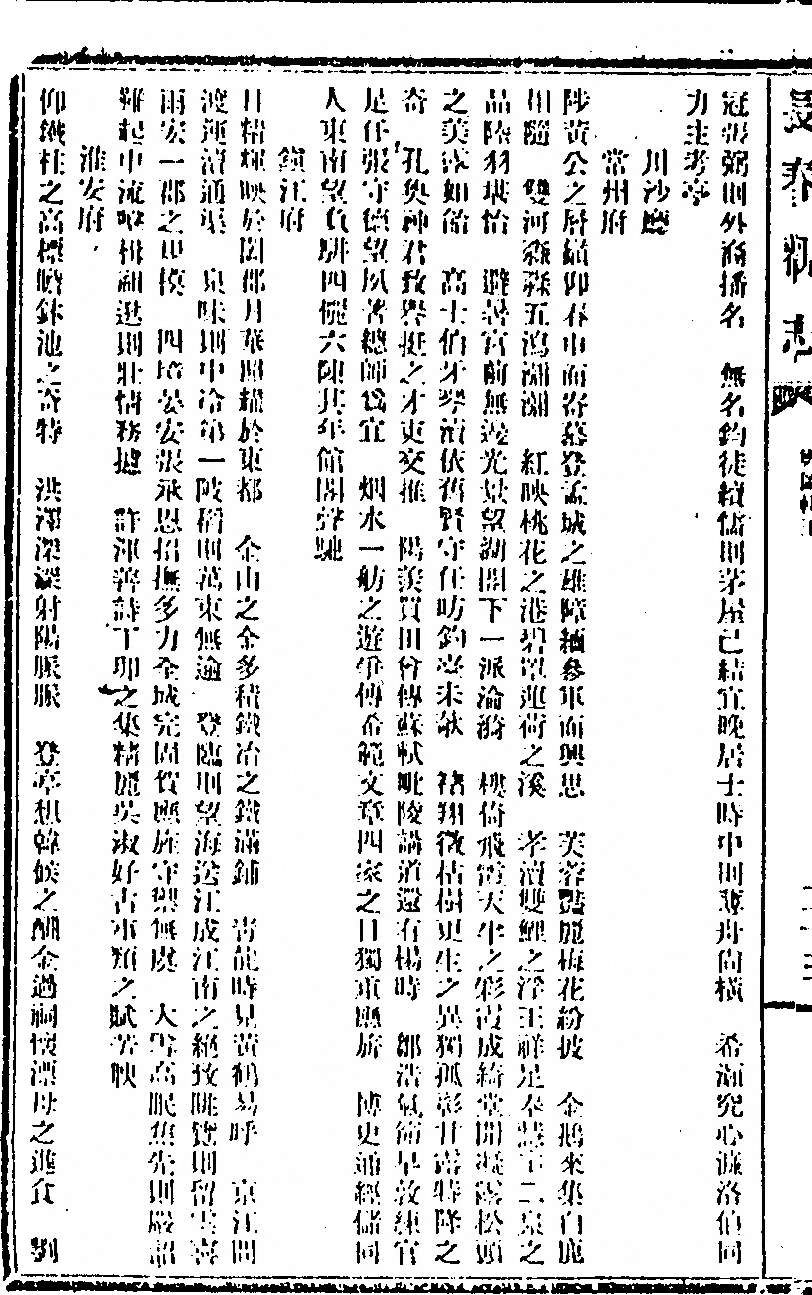 冠張弼則外裔播名　無名釣徒續傋則茅屋已結宜晚居士時中則蓮舟尚橫　希顏究心濂洛伯同
力主考亭
川沙廳
常州府
陟黃公之層嶺仰春申而寄慕登孟城之雄障緬參軍而興思　芙蓉豔麗梅花紛披　金鵝來集白鹿
相隨　雙河淼淼五瀉瀰瀰　紅映桃花之港碧罩蓮荷之溪　孝瀆雙鯉之浮王祥是奉慧下二泉之
品陸羽堪怡　避暑宮前無邊光景望湖閣下一派淪漪　樓倚飛霞天半之彩霞成綺堂開凝露松頭
之美露如飴　高士伯牙琴瀆依舊賢守任昉釣臺未欹　褚翔徵枯樹更生之異獨孤彰甘露特降之
奇　孔奐神君致譽挺之才吏交推　陽羨買田曾傳蘇軾毗陵講道還有楊時　鄒浩氣節早效練官
是任張守德望夙著總師爲宜　烟水一舫之遊爭傳希範文章四家之目獨重應旂　博史通經儲同
人東南望負駢四儷六陳其年館閣聲馳
鎮江府
日精輝映於閎郡月華照耀於東都　金山之金多積鐵冶之鐵滿鋪　青龍時見黃鶴易呼　京江問
渡運瀆通渠　泉味則中泠第一陂稻則萬束無逾　登臨則望海送江成江南之絕致眺覽則留雲喜
雨宏一郡之規模　四境晏安張永恩招撫多力全城完固質應旂守禦無虞　大雪高眠焦先則嚴詔
難起中流擊楫祖逖則壯情務攄　許渾善詩丁卯之集精麗吳淑好古事類之賦著映
淮安府
仰鐵柱之高標瞻鉢池之奇特　洪澤深深射陽脈脈　登亭想韓侯之釣金過祠懷漂母之進食　劉